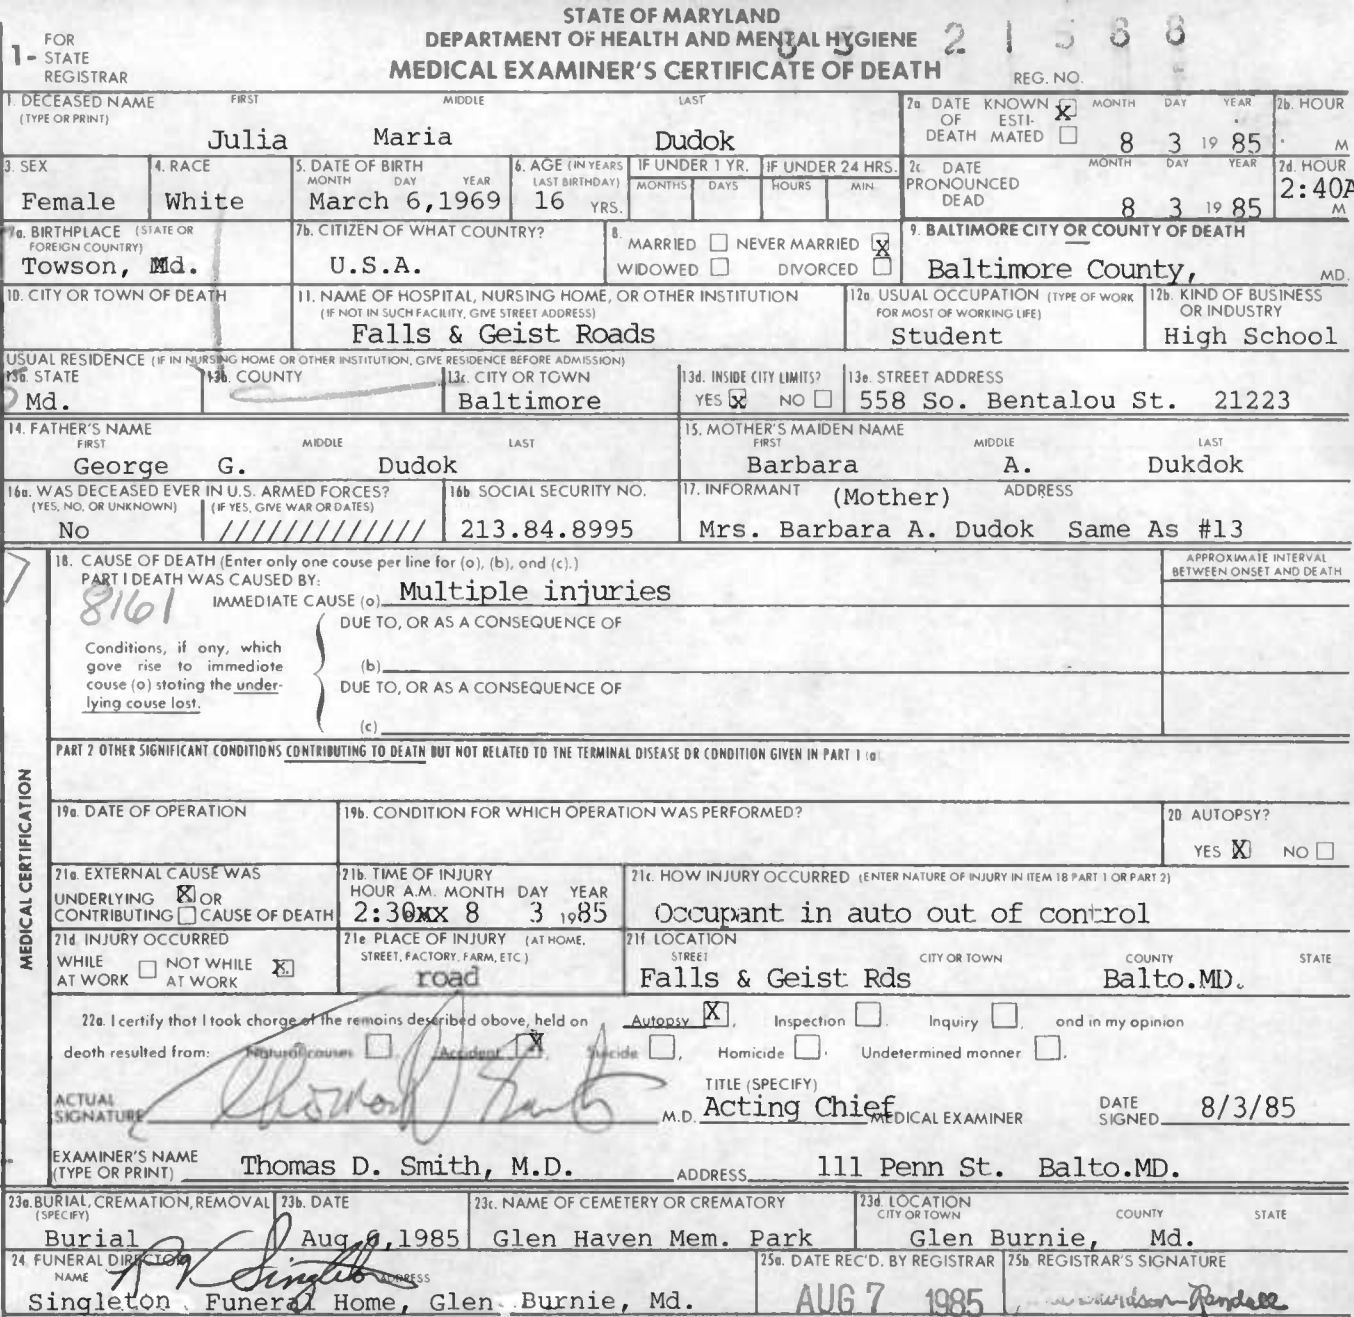 STATE OF MARYLAND
DEPARTMENT OF HEALTH AND MENTAL HYGIENE
MEDICAL EXAMINER'S CERTIFICATE OF DEATH
1- FOR STATE REGISTRAR
REG. NO.
1. DECEASED NAME (TYPE OR PRINT) FIRST MIDDLE LAST
Julia Maria Dudok
2a. DATE OF DEATH KNOWN X ESTIMATED MONTH DAY YEAR 8 3 1985
2b. HOUR M
3. SEX Female
4. RACE White
5. DATE OF BIRTH MONTH DAY YEAR March 6,1969
6. AGE (IN YEARS LAST BIRTHDAY) 16 YRS.
IF UNDER 1 YR. MONTHS DAYS
IF UNDER 24 HRS. HOURS MIN.
2c. DATE PRONOUNCED DEAD MONTH DAY YEAR 8 3 1985
2d. HOUR 2:40A M
7a. BIRTHPLACE (STATE OR FOREIGN COUNTRY) Towson, Md.
7b. CITIZEN OF WHAT COUNTRY? U.S.A.
8. MARRIED NEVER MARRIED X
WIDOWED DIVORCED
9. BALTIMORE CITY OR COUNTY OF DEATH
Baltimore County, MD.
10. CITY OR TOWN OF DEATH
11. NAME OF HOSPITAL, NURSING HOME, OR OTHER INSTITUTION
(IF NOT IN SUCH FACILITY, GIVE STREET ADDRESS)
Falls & Geist Roads
12a. USUAL OCCUPATION (TYPE OF WORK FOR MOST OF WORKING LIFE)
Student
12b. KIND OF BUSINESS OR INDUSTRY
High School
USUAL RESIDENCE (IF IN NURSING HOME OR OTHER INSTITUTION, GIVE RESIDENCE BEFORE ADMISSION)
13a. STATE Md.
13b. COUNTY
13c. CITY OR TOWN Baltimore
13d. INSIDE CITY LIMITS? YES X NO
13e. STREET ADDRESS 558 So. Bentalou St. 21223
14. FATHER'S NAME FIRST MIDDLE LAST
George G. Dudok
15. MOTHER'S MAIDEN NAME FIRST MIDDLE LAST
Barbara A. Dukdok
16a. WAS DECEASED EVER IN U.S. ARMED FORCES?
(YES, NO, OR UNKNOWN) (IF YES, GIVE WAR OR DATES)
No /////////////
16b. SOCIAL SECURITY NO. 213.84.8995
17. INFORMANT (Mother) ADDRESS
Mrs. Barbara A. Dudok Same As #13
MEDICAL CERTIFICATION
18. CAUSE OF DEATH (Enter only one couse per line for (o), (b), ond (c).)
APPROXIMATE INTERVAL BETWEEN ONSET AND DEATH
PART I DEATH WAS CAUSED BY:
8161
IMMEDIATE CAUSE (o) Multiple injuries
DUE TO, OR AS A CONSEQUENCE OF
Conditions, if ony, which gove rise to immediote couse (o) stoting the under-lying couse lost.
(b)
DUE TO, OR AS A CONSEQUENCE OF
(c)
PART 2 OTHER SIGNIFICANT CONDITIONS CONTRIBUTING TO DEATH BUT NOT RELATED TO THE TERMINAL DISEASE OR CONDITION GIVEN IN PART 1 (a)
19a. DATE OF OPERATION
19b. CONDITION FOR WHICH OPERATION WAS PERFORMED?
20 AUTOPSY?
YES X NO
21a. EXTERNAL CAUSE WAS
UNDERLYING X OR
CONTRIBUTING CAUSE OF DEATH
21b. TIME OF INJURY
HOUR A.M. MONTH DAY YEAR
2:30 xx 8 3 1985
21c. HOW INJURY OCCURRED (ENTER NATURE OF INJURY IN ITEM 18 PART 1 OR PART 2)
Occupant in auto out of control
21d. INJURY OCCURRED
WHILE AT WORK NOT WHILE AT WORK X
21e. PLACE OF INJURY (AT HOME, STREET, FACTORY, FARM, ETC.)
road
21f. LOCATION
STREET CITY OR TOWN COUNTY STATE
Falls & Geist Rds Balto.MD.
22a. I certify that I took chorge of the remoins described obove, held on Autopsy X, Inspection, Inquiry, ond in my opinion
deoth resulted from: Noturol couses, Accident X, Suicide, Homicide, Undetermined monner.
ACTUAL SIGNATURE
M.D.
TITLE (SPECIFY)
Acting Chief MEDICAL EXAMINER
DATE SIGNED 8/3/85
EXAMINER'S NAME (TYPE OR PRINT) Thomas D. Smith, M.D.
ADDRESS 111 Penn St. Balto.MD.
23a. BURIAL, CREMATION, REMOVAL (SPECIFY)
Burial
23b. DATE
Aug ,1985
23c. NAME OF CEMETERY OR CREMATORY
Glen Haven Mem. Park
23d. LOCATION CITY OR TOWN COUNTY STATE
Glen Burnie, Md.
24. FUNERAL DIRECTOR
NAME ADDRESS
Singleton Funeral Home, Glen Burnie, Md.
25a. DATE REC'D. BY REGISTRAR
AUG 7 1985
25b. REGISTRAR'S SIGNATURE